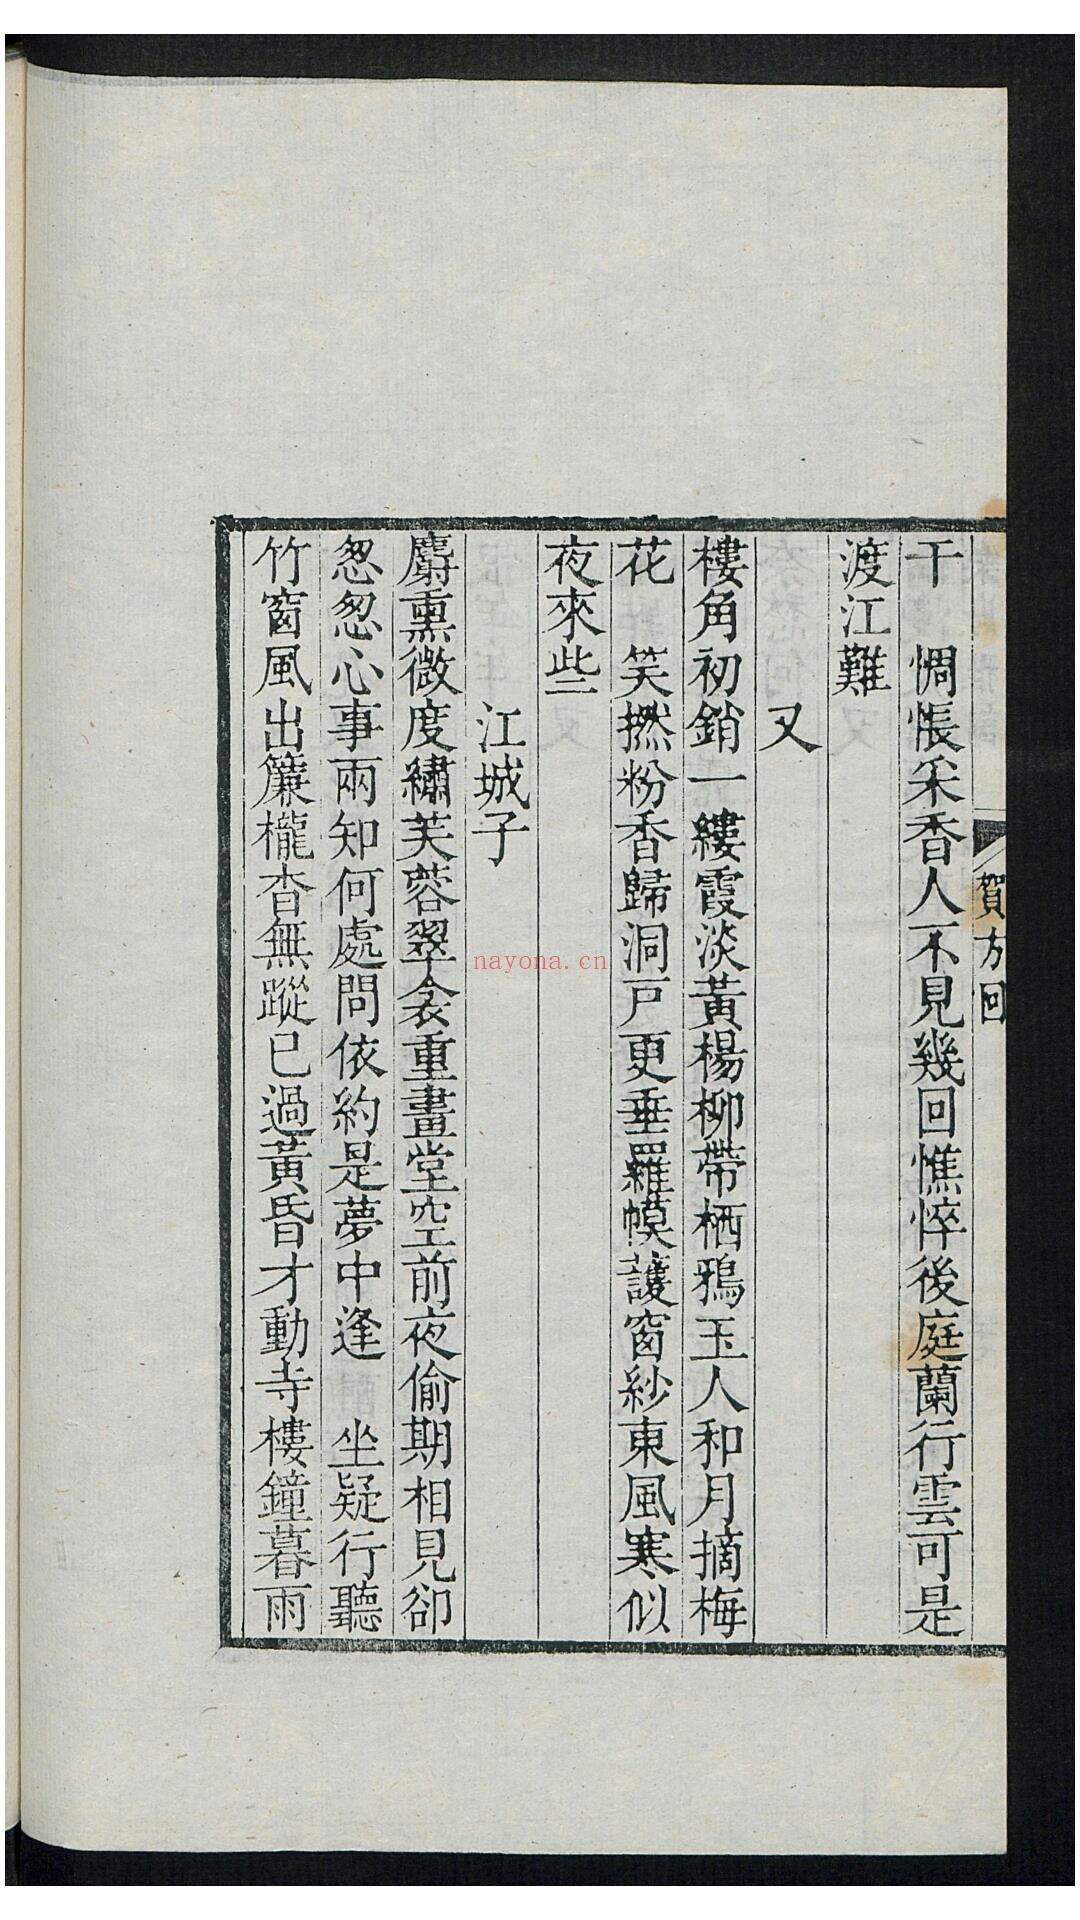 賀方回
干　惆悵采香人不見幾回憔悴後庭蘭行雲可是
渡江難
又
樓角初銷一縷霞淡黃楊柳帶栖鴉玉人和月摘梅
花　笑撚粉香歸洞戶更垂羅幙護窗紗東風寒似
夜來些
江城子
麝熏微度繡芙蓉翠衾重畫堂空前夜偷期相見卻
怱怱心事兩知何處問依約是夢中逢　坐疑行聽
竹窗風出簾櫳杳無蹤已過黃昏才動寺樓鐘暮雨
nayona.cn